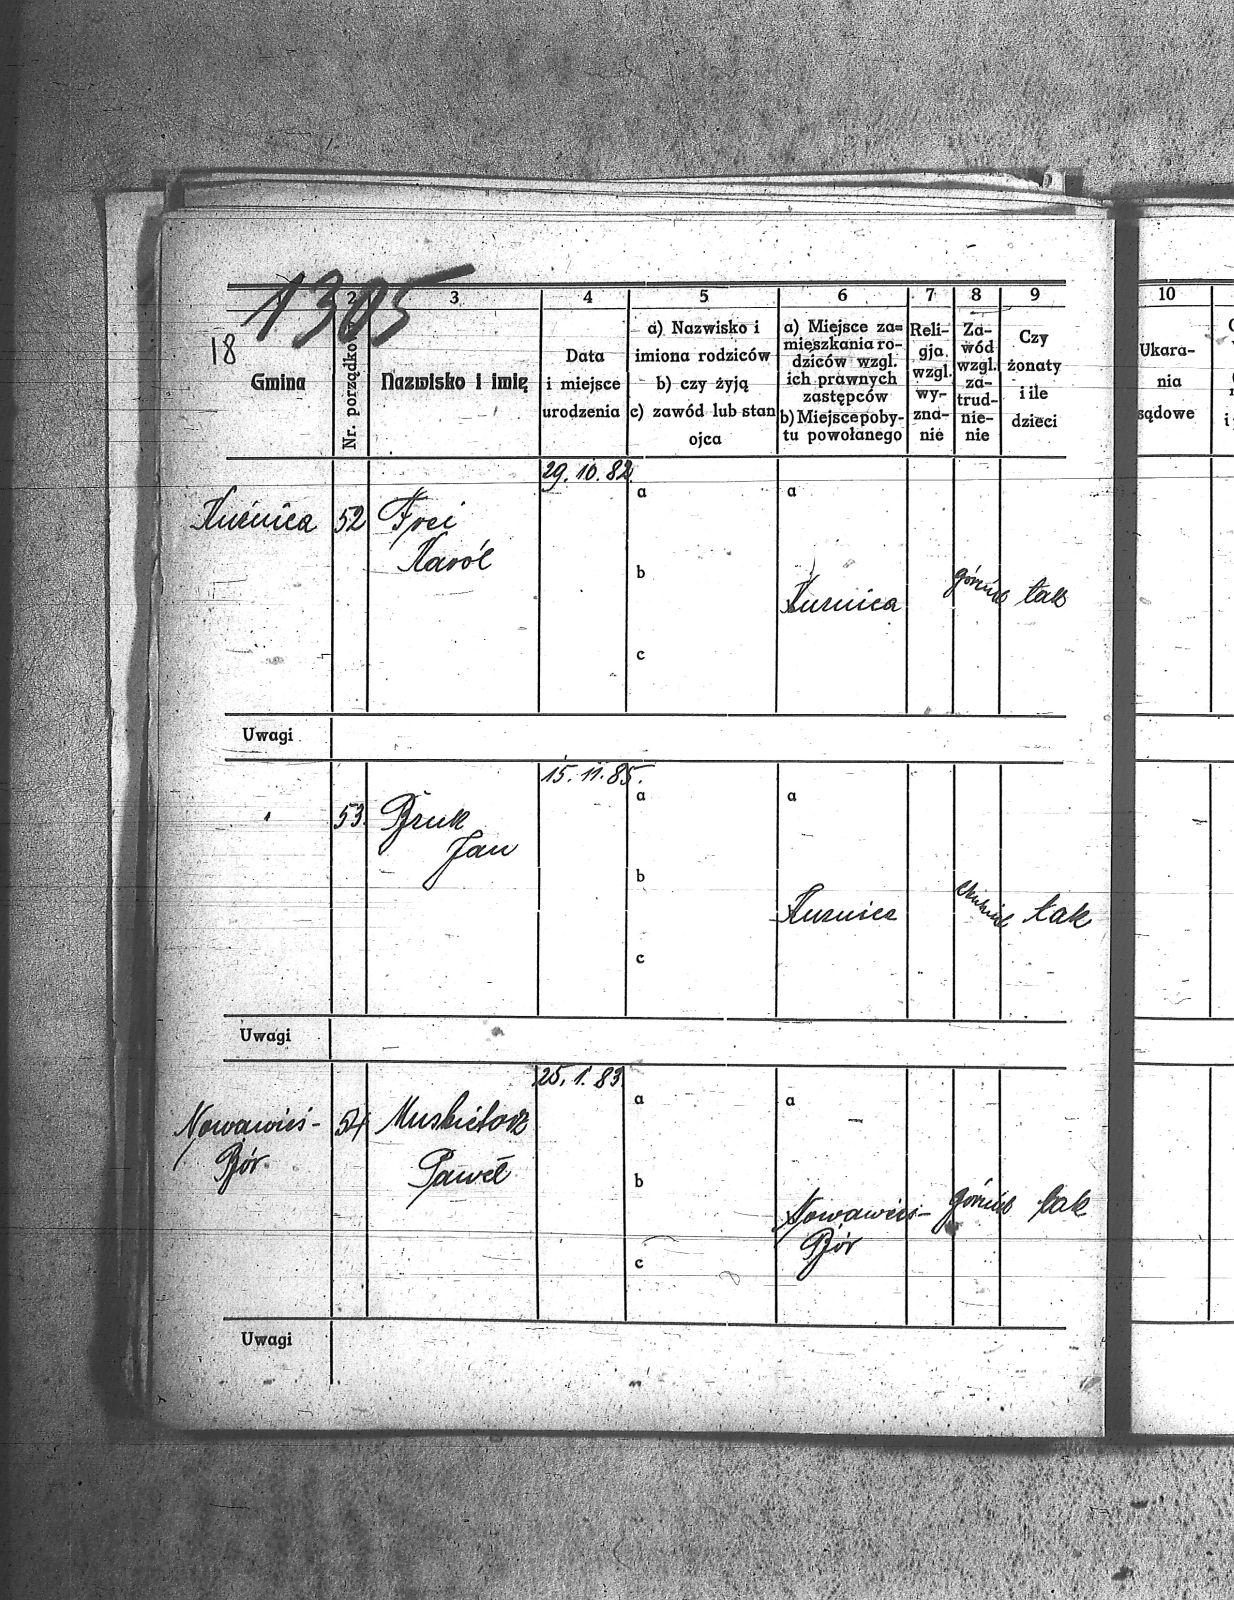 1305
18
2
3
4
5
6
7
8
9
10
Gmina
Nr. porządko
Nazwisko i imię
Data
i miejsce
urodzenia
a) Nazwisko i
imiona rodziców
b) czy żyją
c) zawód lub stan
ojca
a) Miejsce za=
mieszkania ro-
dziców wzgl.
ich prawnych
zastępców
b) Miejsce poby-
tu powołanego
Reli-
gja
wzgl.
wy-
zna-
nie
Za-
wód
wzgl.
za-
trud-
nie-
nie
Czy
żonaty
i ile
dzieci
Ukara-
nia
sądowe
29.10.82.
Kuźnica
52
Frei
Karól
a
b
c
a
Kuźnica
górnik
tak
Uwagi
15.11.85.
53
Bruk
Jan
a
b
c
a
Kuźnica
tak
Uwagi
25.1.83.
Nowawieś-
Bór
54
Muskietorz
Paweł
a
b
c
a
Nowawieś-
Bór
górnik
tak
Uwagi